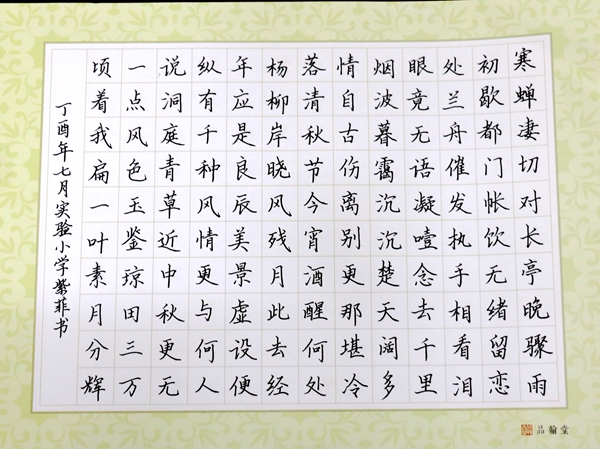 寒蝉凄切对长亭晚骤雨
初歇都门帐饮无绪留恋
处兰舟催发执手相看泪
眼竟无语凝噎念去千里
烟波暮霭沉沉楚天阔多
情自古伤离别更那堪冷
落清秋节今宵酒醒何处
杨柳岸晓风残月此去经
年应是良辰美景虚设便
纵有千种风情更与何人
说洞庭青草近中秋更无
一点风色玉鉴琼田三万
顷着我扁一叶素月分辉
丁酉年七月实验小学紫菲书
品翰堂